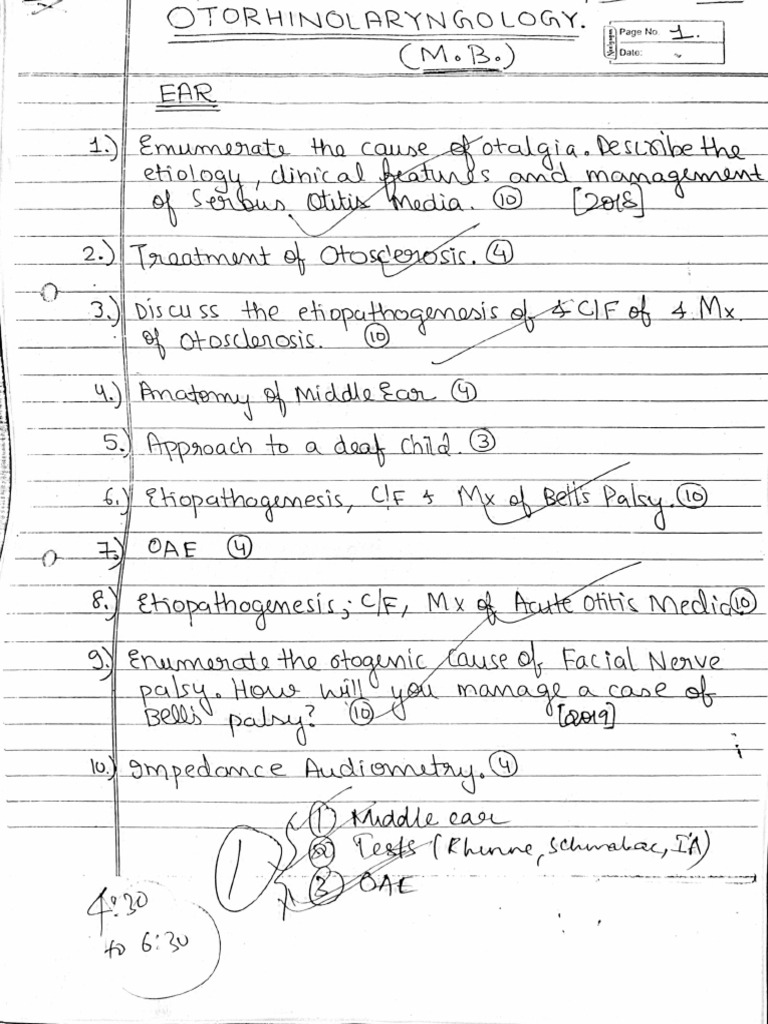 OTORHINOLARYNGOLOGY.
(M.B.)
Page No. 1.
Date:
EAR
1.) Enumerate the cause of otalgia. Describe the
etiology, clinical features and management
of Serous Otitis Media. (10) [2018]
2.) Treatment of Otosclerosis. (4)
3.) Discuss the etiopathogenesis of & C/F of & Mx.
of otosclerosis. (10)
4.) Anatomy of Middle Ear (4)
5.) Approach to a deaf child. (3)
6.) Etiopathogenesis, C/F & Mx of Bell's Palsy. (10)
7.) OAE (4)
8.) Etiopathogenesis, C/F, Mx of Acute Otitis Media (10)
9.) Enumerate the otogenic cause of Facial Nerve
palsy. How will you manage a case of
Bell's palsy? (10) [2019]
10.) Impedance Audiometry. (4)
1 (1) Middle ear
(2) Tests (Rhinne, Schwabac, IA)
(3) OAE
4:30
to 6:30